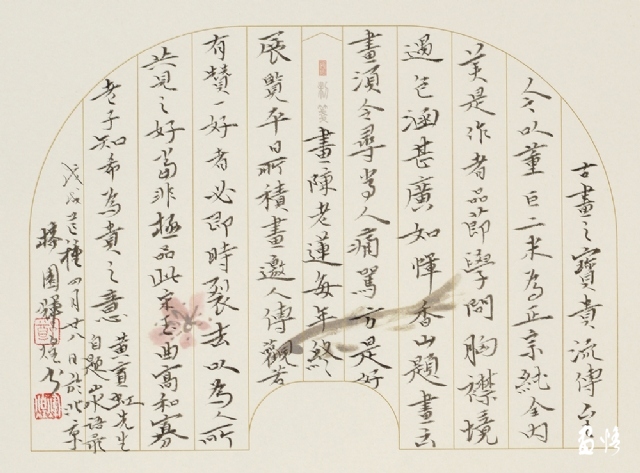 古畫之寶貴流傳至
今以董巨二米為正宗純全内
美是作者品節學問胸襟境
遇包涵甚廣如惲香山題畫云
畫須令尋常人痛罵方是好
畫陳老蓮每年終
展覽平日所積畫邀人傳觀若
有贊一好者必即時裂去以為人所
共見之好當非極品此宋玉曲高和寡
老子知希為貴之意
黃賓虹先生
自題山水語录
戊戌芒種四月廿八日於北京
蔣國